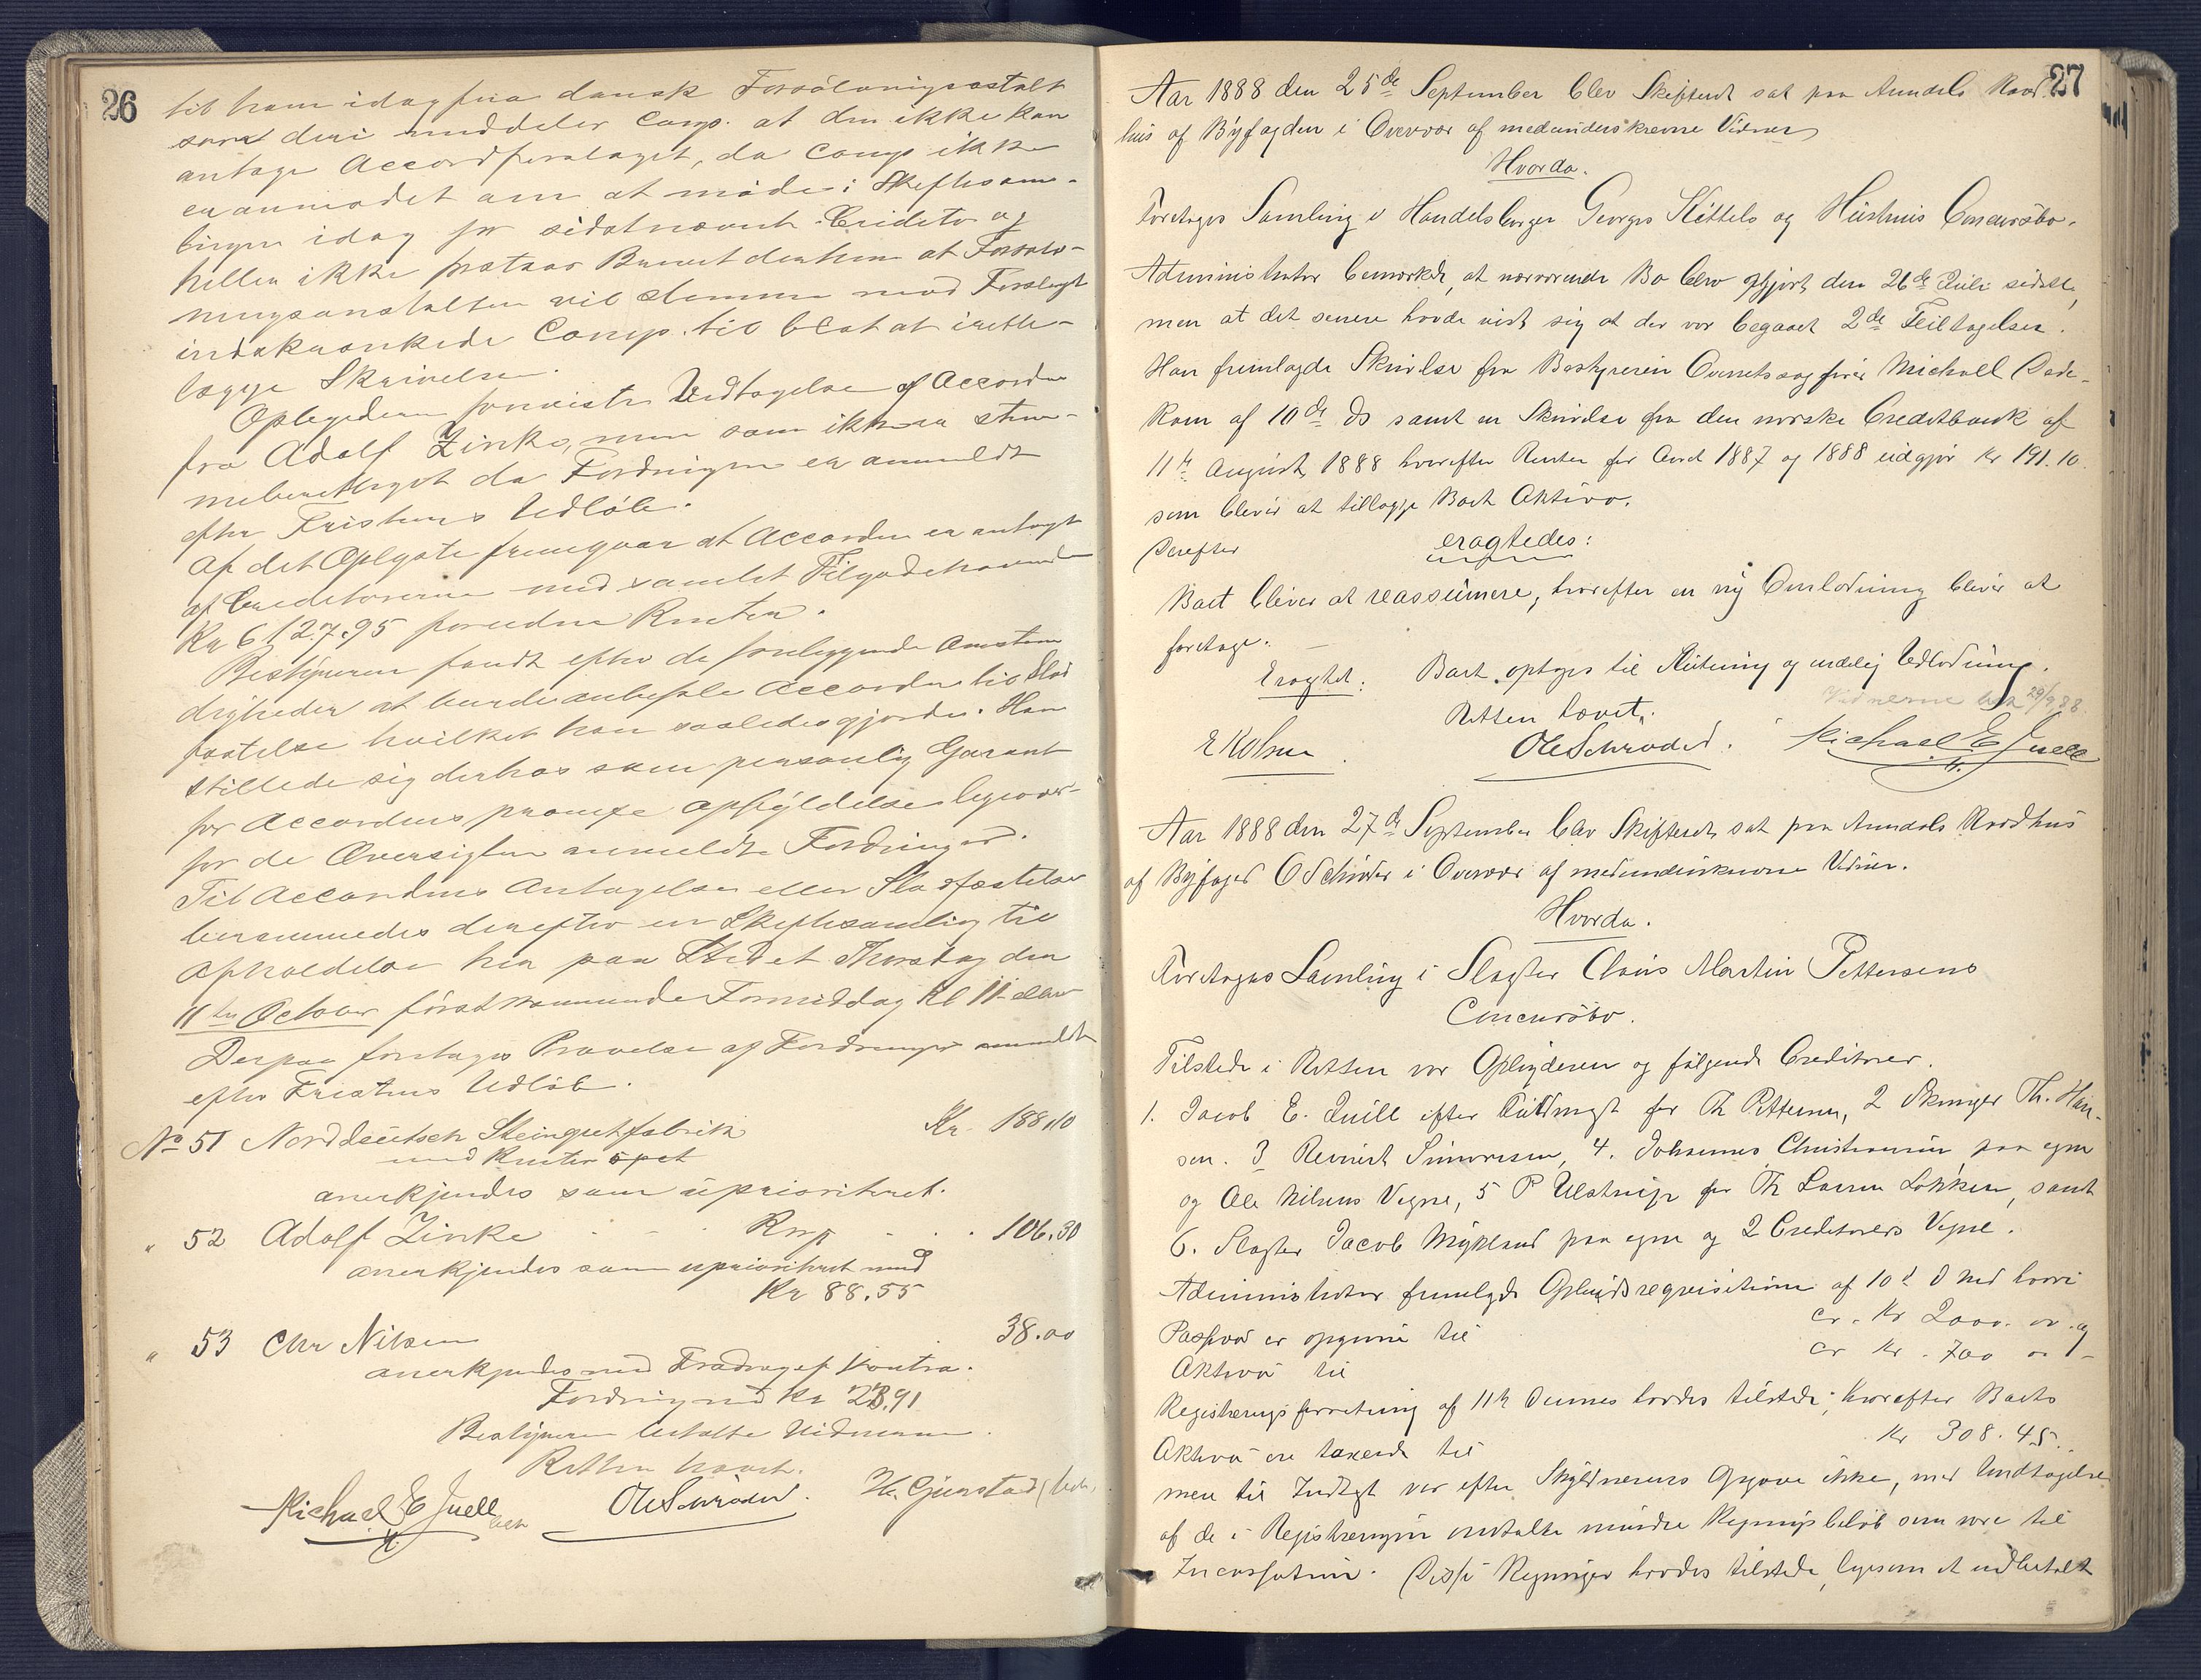 26
til ham idag fra dansk Forsølvningsanstalt
samt deri meddeler Comp. at den ikke kan
antage Accordforslaget, da Comp ikke
er anmodet om at møde i Skiftesam-
lingen idag for sidstnævnte Creditor og
heller ikke fratraa Brevet derhen at Forsølv-
ningsanstalten vil stemme mod Forslaget
indskrænkede Comp. til blot at irette-
lægge Skrivelsen.
Oplyderen foreviste Vedtagelse af Accorden
fra Adolf Zinke, men som ikke er stem-
meberettiget da Fordringen er anmeldt
efter Fristens Udløb.
Af det Oplyste fremgaar at Accorden er antaget
af Creditorerne med samlet Tilgodehavende
Kr 6127.95 foruden Renter.
Bestyreren fandt efter de foreliggende Omstæn
digheder at burde anbefale Accorden til Stad
fæstelse hvilket han saaledes gjorde. Han
stillede sig derhos som personlig Garant
for Accordens prompte Opfyldelse ligeover-
for de Oversigten anmeldte Fordringer.
Til Accordens Antagelse eller Stadfæstelse
berammedes derefter en Skiftesamling til
Afholdelse her paa Stedet Thorsdag den
11te October førstkommende Formiddag Kl 11
Derpaa foretages Prøvelse af Fordringer anmeldt
efter Fristens Udløb.
No 51 Norddeutsch Steingutfabrik Kr. 188,10
med Renter
anerkjendes som uprioriteret.
" 52 Adolf Zinke . . . . . 106.30
anerkjendes som uprioriteret med
Kr 88.55
" 53 Chr Nilsen . 38.00
anerkjendes med Fradrag af Kontra-
Fordring med Kr 23.91
Bestyreren betalte Vidnerne.
Retten hævet.
Michael E Juell OleSchrøder. H. Gjerstad
27
Aar 1888 den 25de September blev Skifteret sat paa Arendals Raad
hus af Byfogden i Overvær af medunderskrevne Vidner
Hvorda.
Foretoges Samling i Handelsborger Georges Kittels og Hustrus Concursbo.
Administrator bemærkede, at nærværende Bo blev opgjort den 26de Juli sidstl,
men at det senere havde vist sig at der var begaaet 2de Feiltagelser.
Han fremlagde Skrivelse fra Bestyreren Overretssagfører Michael Pede-
rsen af 10de ds samt en Skrivelse fra den norske Creditbank af
11te August 1888 hvorefter Renter for Aaret 1887 og 1888 udgjør Kr 191.10
som bliver at tillægge Boets Aktiva.
Derefter eragtedes:
Boet bliver at reassumere, hvorefter en ny Omlodning bliver at
foretage.
Eragtet: Boet optages til Slutning og endelig Udlodning.
Retten hævet. Vidnerne bet 29/9 88.
EHolmer OleSchrøder. Michael E Juell
Aar 1888 den 27de September blev Skifteret sat paa Arendals Raadhus
af Byfoged OSchrøder i Overvær af medunderskrevne Vidner.
Hvorda.
Foretoges Samling i Slagter Claus Martin Pettersens
Concursbo.
Tilstede i Retten var Oplyderen og følgende Creditorer.
1. Jacob E. Juell efter Fuldmagt for Th Pettersen, 2 Th. Han-
sen. 3 Reinert Simonsen, 4. Johannes Christensen paa egne
og Ole Nilsens Vegne, 5 P Ulstrup for Th Larsen Løkken, samt
6. Slagter Jacob Mykland paa egne og 2 Creditorers Vegne.
Administrator fremlagde Opbudsrequisitionen af 10d d Md hvori
Passiva er opgivne til cr. Kr 2000. 00. og
Aktiva til cr Kr. 700 00 -
Registreringsforretning af 11te dennes havdes tilstede, hvorefter Boets
Aktiva ere taxerede til Kr 308.45.
men til Indtægt var efter Skyldnerens Opgave ikke, med Undtagelse
af de i Registreringen omtalte mindre Regningsbeløb som vare til
Incassation. Disse Regninger havdes tilstede, ligesom et udbetalt